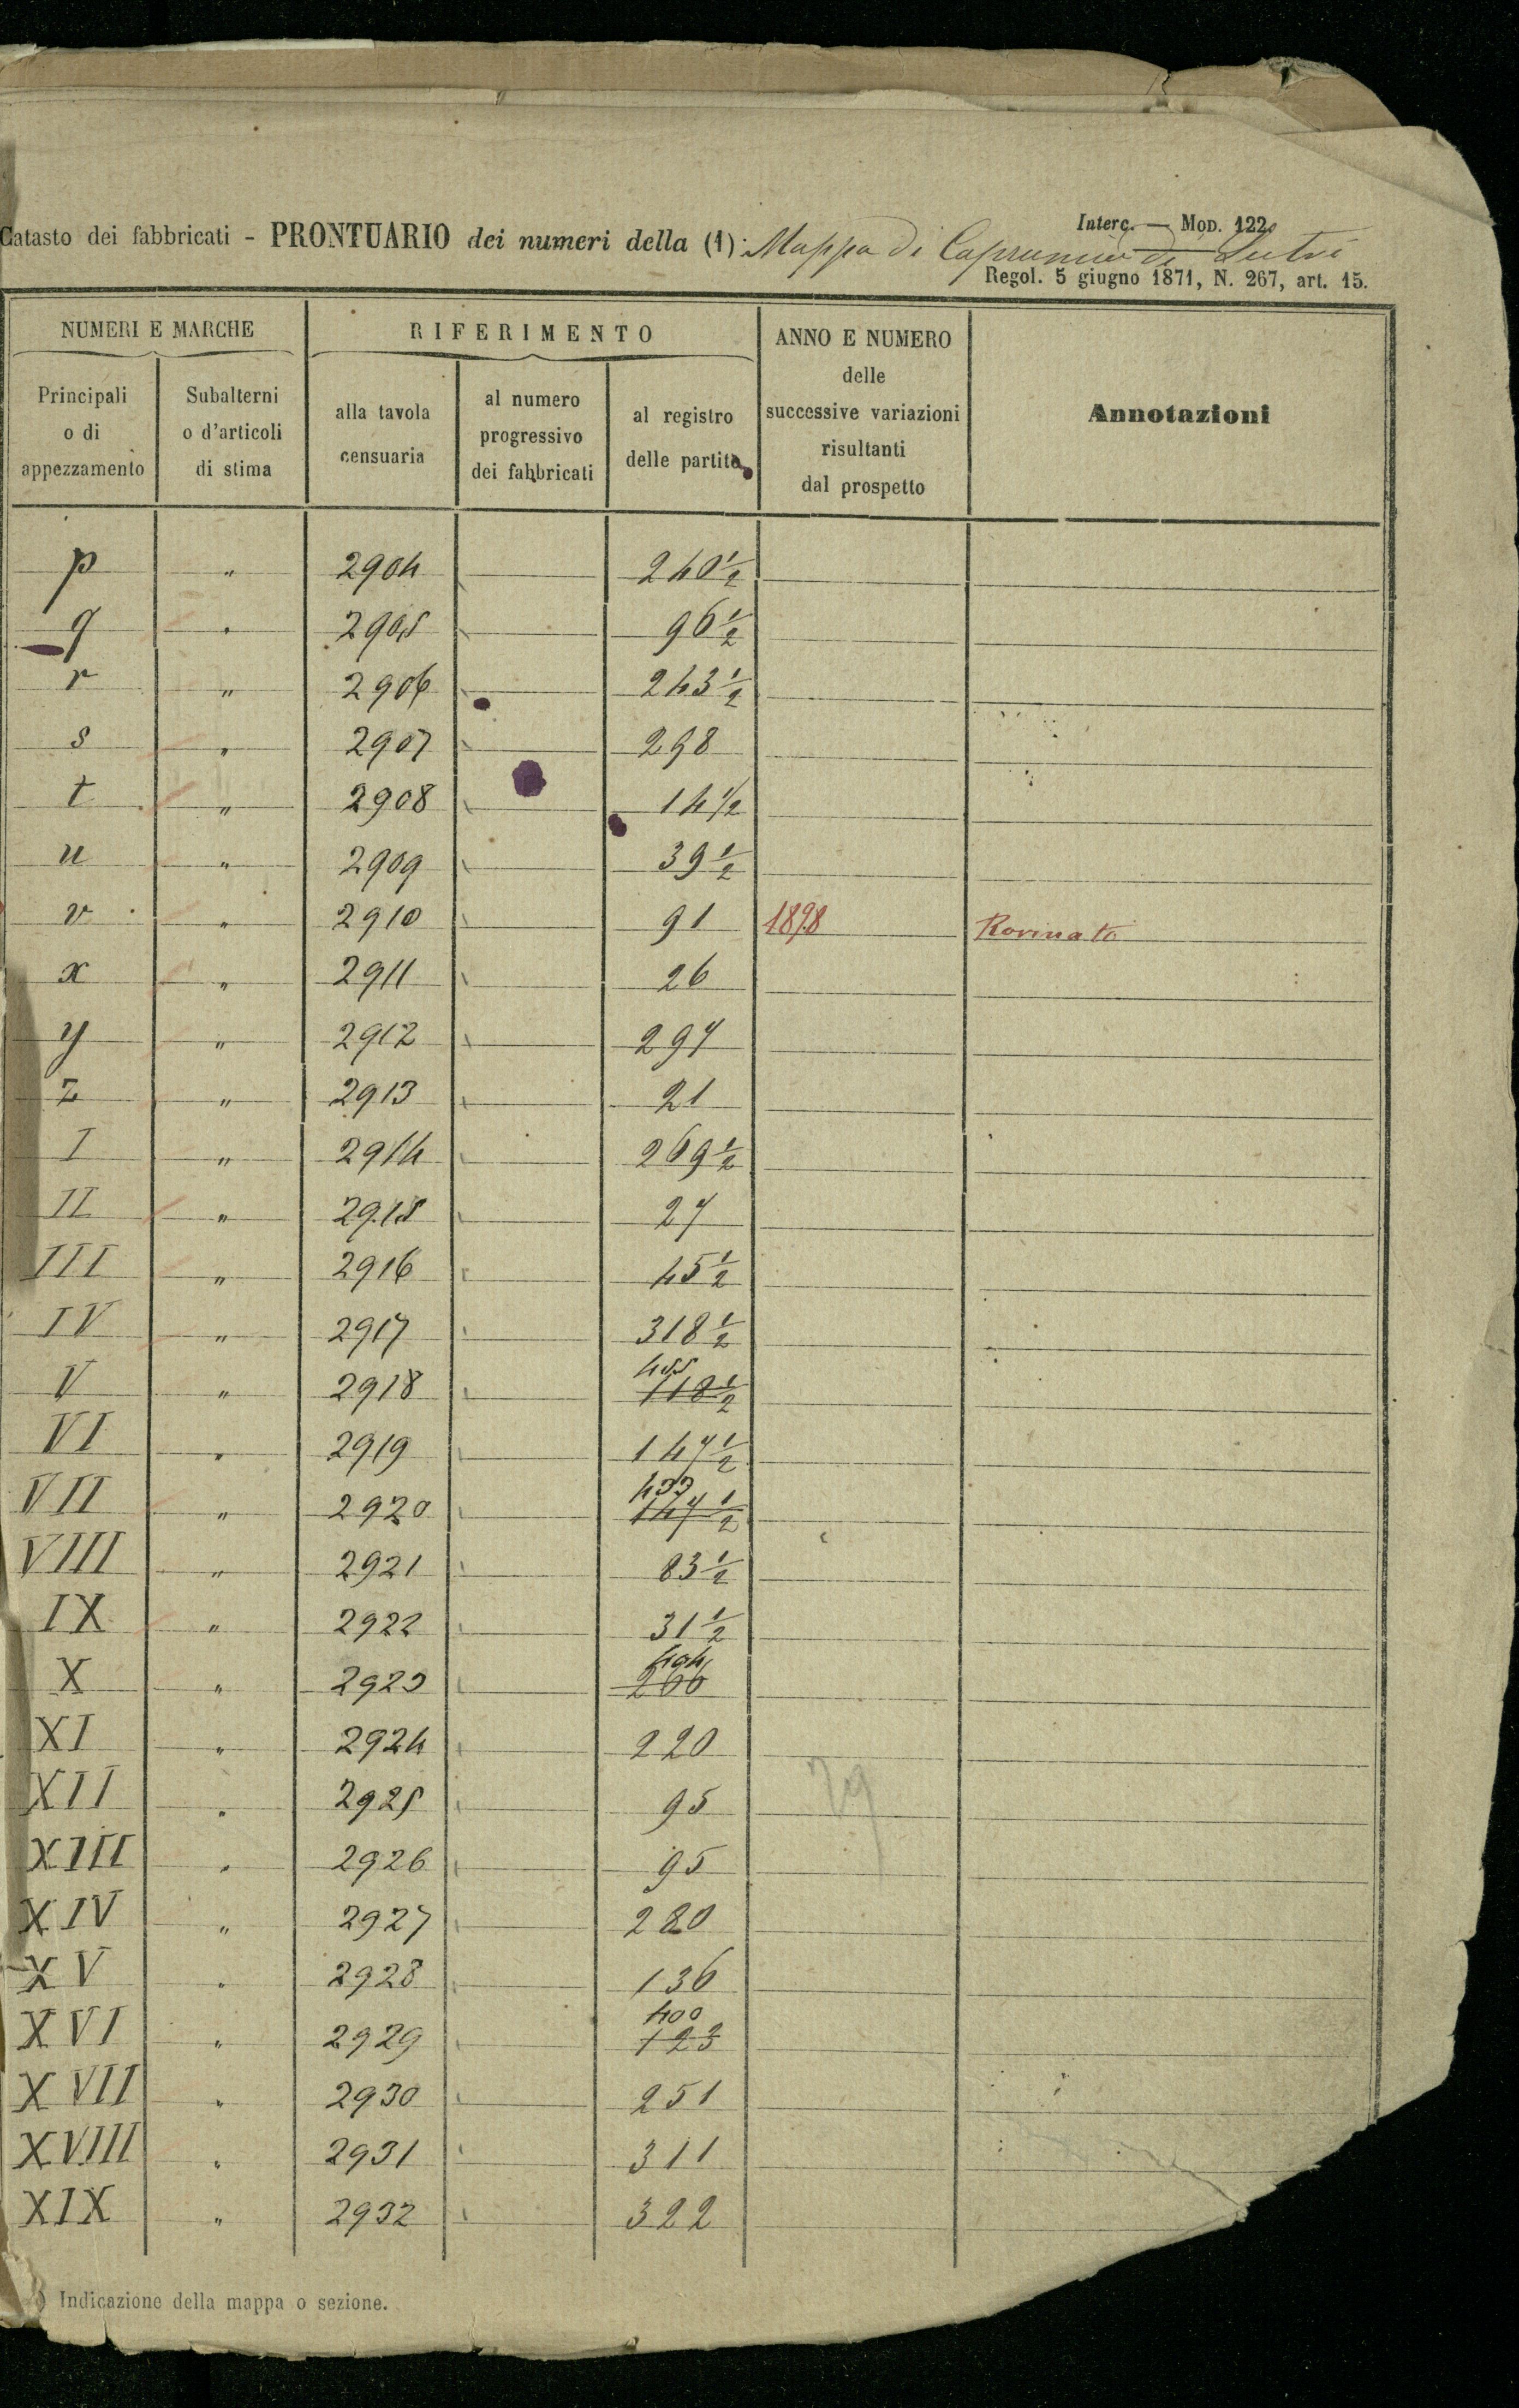 Interc. — Mod. 122.
Catasto dei fabbricati - PRONTUARIO dei numeri della (1): Mappa di di Sutri
Regol. 5 giugno 1871, N. 267, art. 15.
NUMERI E MARCHE RIFERIMENTO ANNO E NUMERO delle successive variazioni risultanti dal prospetto Annotazioni
Principali o di appezzamento Subalterni o d'articoli di stima alla tavola censuaria al numero progressivo dei fabbricati al registro delle partite
p " 2904 240 1/2
q " 2905 96 1/2
r " 2906 243 1/2
s " 2907 298
t " 2908 14 1/2
u " 2909 39 1/2
v " 2910 91 1898 Rovinato
x " 2911 26
y " 2912 297
z " 2913 21
I " 2914 269 1/2
II " 2915 27
III " 2916 45 1/2
IV " 2917 318 1/2
455
V " 2918 118 1/2
VI " 2919 147 1/2
433
VII " 2920 147 1/2
VIII " 2921 83 1/2
IX " 2922 31 1/2
404
X " 2923 266
XI " 2924 220
XII " 2925 95
79
XIII " 2926 95
XIV " 2927 280
XV " 2928 136
400
XVI " 2929 123
XVII " 2930 251
XVIII " 2931 311
XIX " 2932 322
) Indicazione della mappa o sezione.